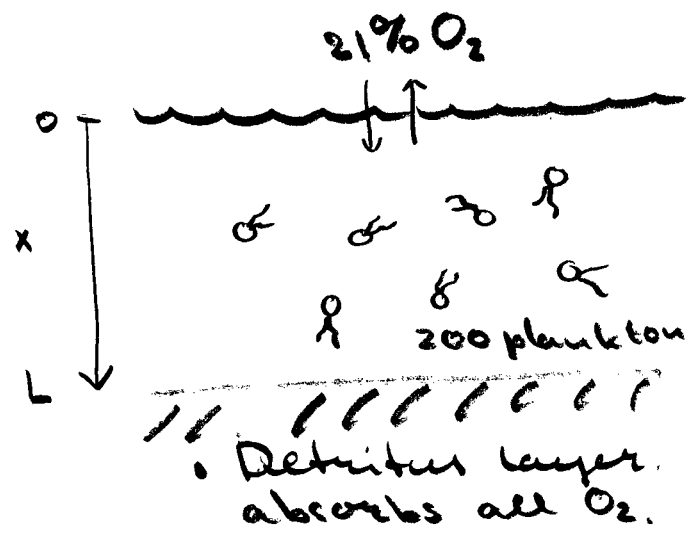 21% O₂
0
x
200 plankton
L
• Detritus layer
absorbs all O₂.